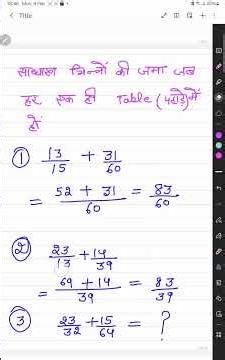 Title
साधारण भिन्नों की जमा जब
हर एक ही Table (पहाड़े) में
हों
① 13/15 + 31/60
= 52 + 31/60 = 83/60
② 23/13 + 14/39
= 69 + 14/39 = 83/39
③ 23/32 + 15/64 = ?